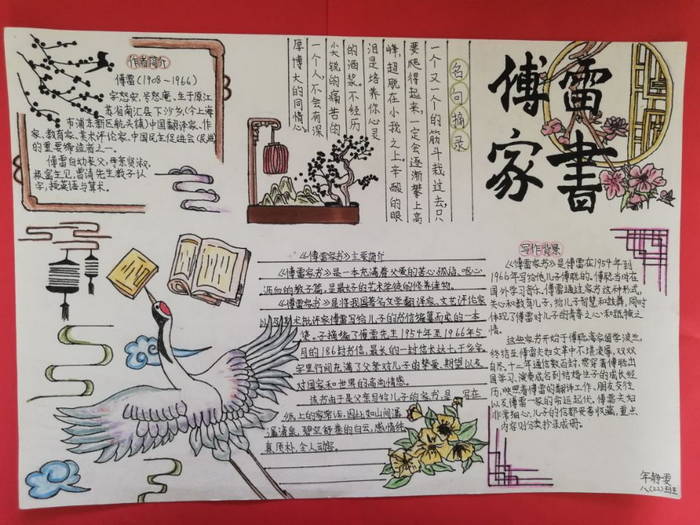 傅雷
家书
名句摘录
一个又一个的筋斗栽过去,只
要爬得起来,一定会逐渐攀上高
峰,超脱在小我之上。辛酸的眼
泪是培养你心灵
的酒浆。不经历
尖锐的痛苦的
一个人不会有深
厚博大的同情心
作者简介
傅雷(1908-1966)
字怒安,号怒庵,生于原江
苏省南汇县下沙乡(今上海
市浦东新区航头镇)中国翻译家、作
家、教育家、美术评论家,中国民主促进会(民进)
的重要缔造者之一。
傅雷自幼丧父,
《傅雷家书》主要简介
《傅雷家书》是一本充满着父爱的苦心孤诣、呕心
沥血的教子篇,是最好的艺术学徒的修养读物。
《傅雷家书》是将我国著名文学翻译家、文艺评论家
美术批评家傅雷写给儿子的书信编纂而来的一本
摘编了傅雷先生1954年至1966年5
月的186封书信,最长的一封信长达七千多字。
字里行间充满了父亲对儿子的挚爱、期望以及
对国家和世界的高尚情感。
该书由于是父亲写给儿子的家书,是写在
纸上的家常话,因此如山间潺
潺清泉,碧空舒卷的白云,感情纯
真、质朴,令人动容。
写作背景
《傅雷家书》是傅雷在1954年到
1966年写给他儿子傅聪的。傅聪当时在
国外学习音乐。傅雷通过家书这种形式,
关心和教育儿子,给儿子智慧和鼓舞,同时
体现了傅雷对儿子的
这些家书开始于傅聪离家留学波兰,
终结至傅雷夫妇文革中不堪凌辱,双双
自尽。十二年通信数百封,贯穿着傅聪出
国学习、演奏成名到结婚生子的成长经
历,映照着傅雷的翻译工作、朋友交往
以及傅雷一家的命运起伏。傅雷夫妇
非常细心,儿子的信都妥善收藏,重点
内容则分类抄录成册。
八(22)班